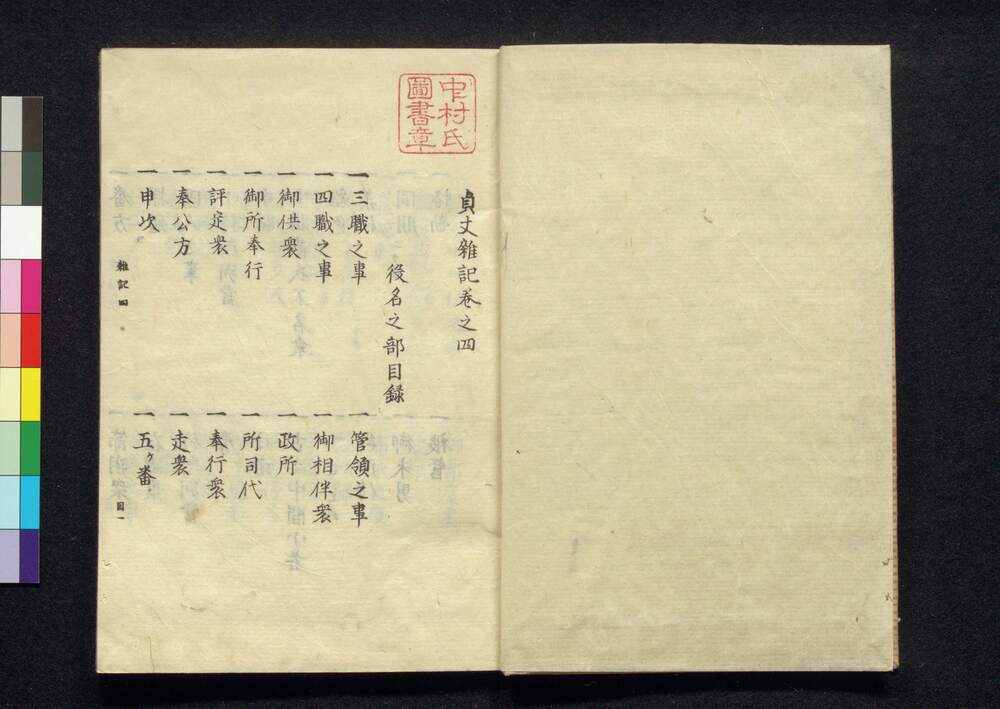 中村氏
圖書章
貞丈雜記巻之四
役名之部目録
一 三職之事
一 管領之事
一 四職之事
一 御相伴衆
一 御供衆
一 政所
一 御所奉行
一 所司代
一 評定衆
一 奉行衆
一 奉公方
一 走衆
一 申次
一 五ケ番
雜記四
目一